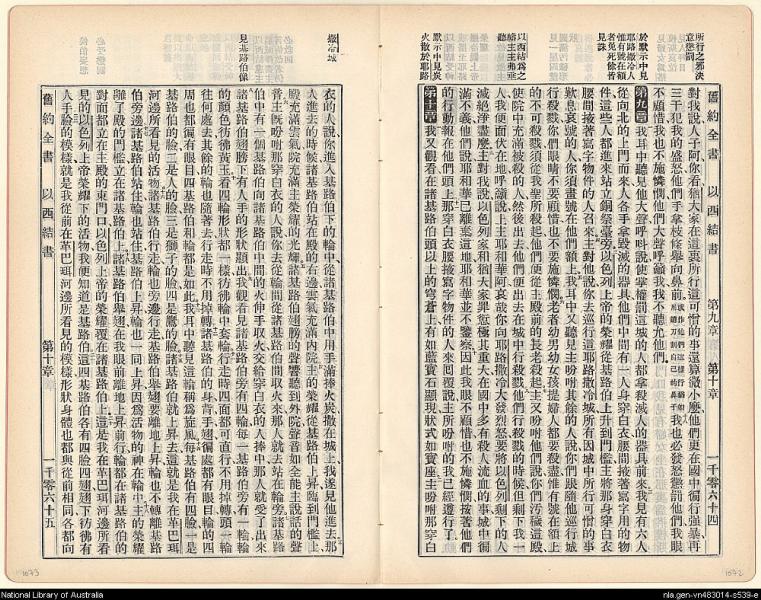 所行之惡決
意懲罰
於默示中見
耶路撒冷人
惟有號在額
者免死餘皆
見誅
以西結為之
籲主主弗垂
聽
默示中見炭
火散於耶路
舊約全書　以西結書　第九章　第十章　一千零六十四
對我說人子阿你看猶大家在這裏所行這可憎的事還算微小麼他們更在國中徧行强暴再
三干犯我的盛怒他們手拿枝條舉向鼻前我也必發怒懲罰他們我眼
不顧惜我也不施憐憫他們大聲呼籲我我不聽允他們
第九章 我耳中聽見他大聲呼叫說使掌權罰這城的人都拿殺滅人的器具前來我見有六人
從向北的上門而來人各手拿毀滅的器具他們中間有一人身穿白衣腰間掖著寫字用的物
件這些人都進來站立銅祭臺旁以色列上帝的榮耀從基路伯上升到門檻主將那身穿白衣
腰間掖著寫字物件的人召來主對他說你去巡行這耶路撒冷城所有因城中所行可憎的事
歎息哀號的人你須畫號在他們額上我耳中又聽見主吩咐其餘的人說你們跟隨他巡行城
行殺戮你們眼睛不要顧惜也不要施憐憫老者幼男幼女孩提婦人都要殺盡惟有號在額上
的不可殺戮須從我聖所殺起他們便從主殿前的長老殺起主又吩咐他們說你們汚穢這殿
使院中充滿被殺的人然後出去他們便出去在城中行殺戮他們行殺戮的時候但剩下我一
人我便面伏在地呼籲說上主耶和華阿哀哉你向耶路撒冷大發烈怒要將以色列剩下的人
滅絕淨盡麼主對我說以色列家和猶大家罪愆極其重大在國中多有殺人流血的事城中徧
滿不義他們說耶和華已離棄這地耶和華並不鑒察因此我眼不顧惜也不施憐憫按著他們
的行動報在他們頭上那穿白衣腰掖寫字物件的人來囘覆說主所吩咐的我已經遵行了
第十章 我又觀看在諸基路伯頭以上的穹蒼上有如藍寶石顯現狀式如寶座主吩咐那穿白
撒冷城
見基路伯像
衣的人說你進入基路伯下的輪中從諸基路伯中用手滿捧火炭撒在城上我遂見他進去那
人進去的時候諸基路伯站在殿的右邊雲氣充滿內院主的榮耀從基路伯上昇臨到門檻上
殿充滿雲氣院充滿主榮耀的光輝諸基路伯翅膀的聲響聽到外院聲音如全能主說話的聲
音主旣吩咐那穿白衣的人說你去從輪間從諸基路伯間取火來那人就去站在輪旁諸基路
伯中有一個基路伯向諸基路伯中間的火伸手取火交給穿白衣的人捧中那人就受了出來
諸基路伯翅膀下有人手的形狀顯出我觀看見諸基路伯旁有四輪每一基路伯旁有一輪輪
的顏色彷彿黃玉看四輪形狀都一樣彷彿輪中套輪行走時四面都可直行不用掉轉頭一輪
往何處去其餘的輪也隨著去行走時不用掉轉諸基路伯的身背手翅徧處都有眼目輪的四
周也都徧有眼目四基路伯和輪都是如此我耳中聽見這輪稱為旋風每基路伯有四臉一是
基路伯的臉二是人的臉三是獅子的臉四是鷹的臉諸基路伯就上昇去這就是我在革巴珥
河邊所看見的活物諸基路伯行走輪也旁邊行走基路伯舉翅要離地上昇輪也不轉離基路
伯旁邊諸基路伯站住輪也站住基路伯上昇輪也一同上昇因為活物的神在輪中主的榮耀
離了殿的門檻立在諸基路伯上諸基路伯舉翅在我眼前離地上昇前行輪都在諸基路伯的
對面都立在主殿的東門口以色列上帝的榮耀覆在諸基路伯上這是我在革巴珥河邊所看
見的以色列上帝榮耀下的活物我便知道是基路伯這四基路伯各有四臉四翅翅下彷彿有
人手臉的模樣就是我從前在革巴珥河邊所看見的模樣形狀身體也都與從前相同各都向
舊約全書　以西結書　第十章　一千零六十五
1073
1072
National Library of Australia
nla.gen-vn483014-s539-e